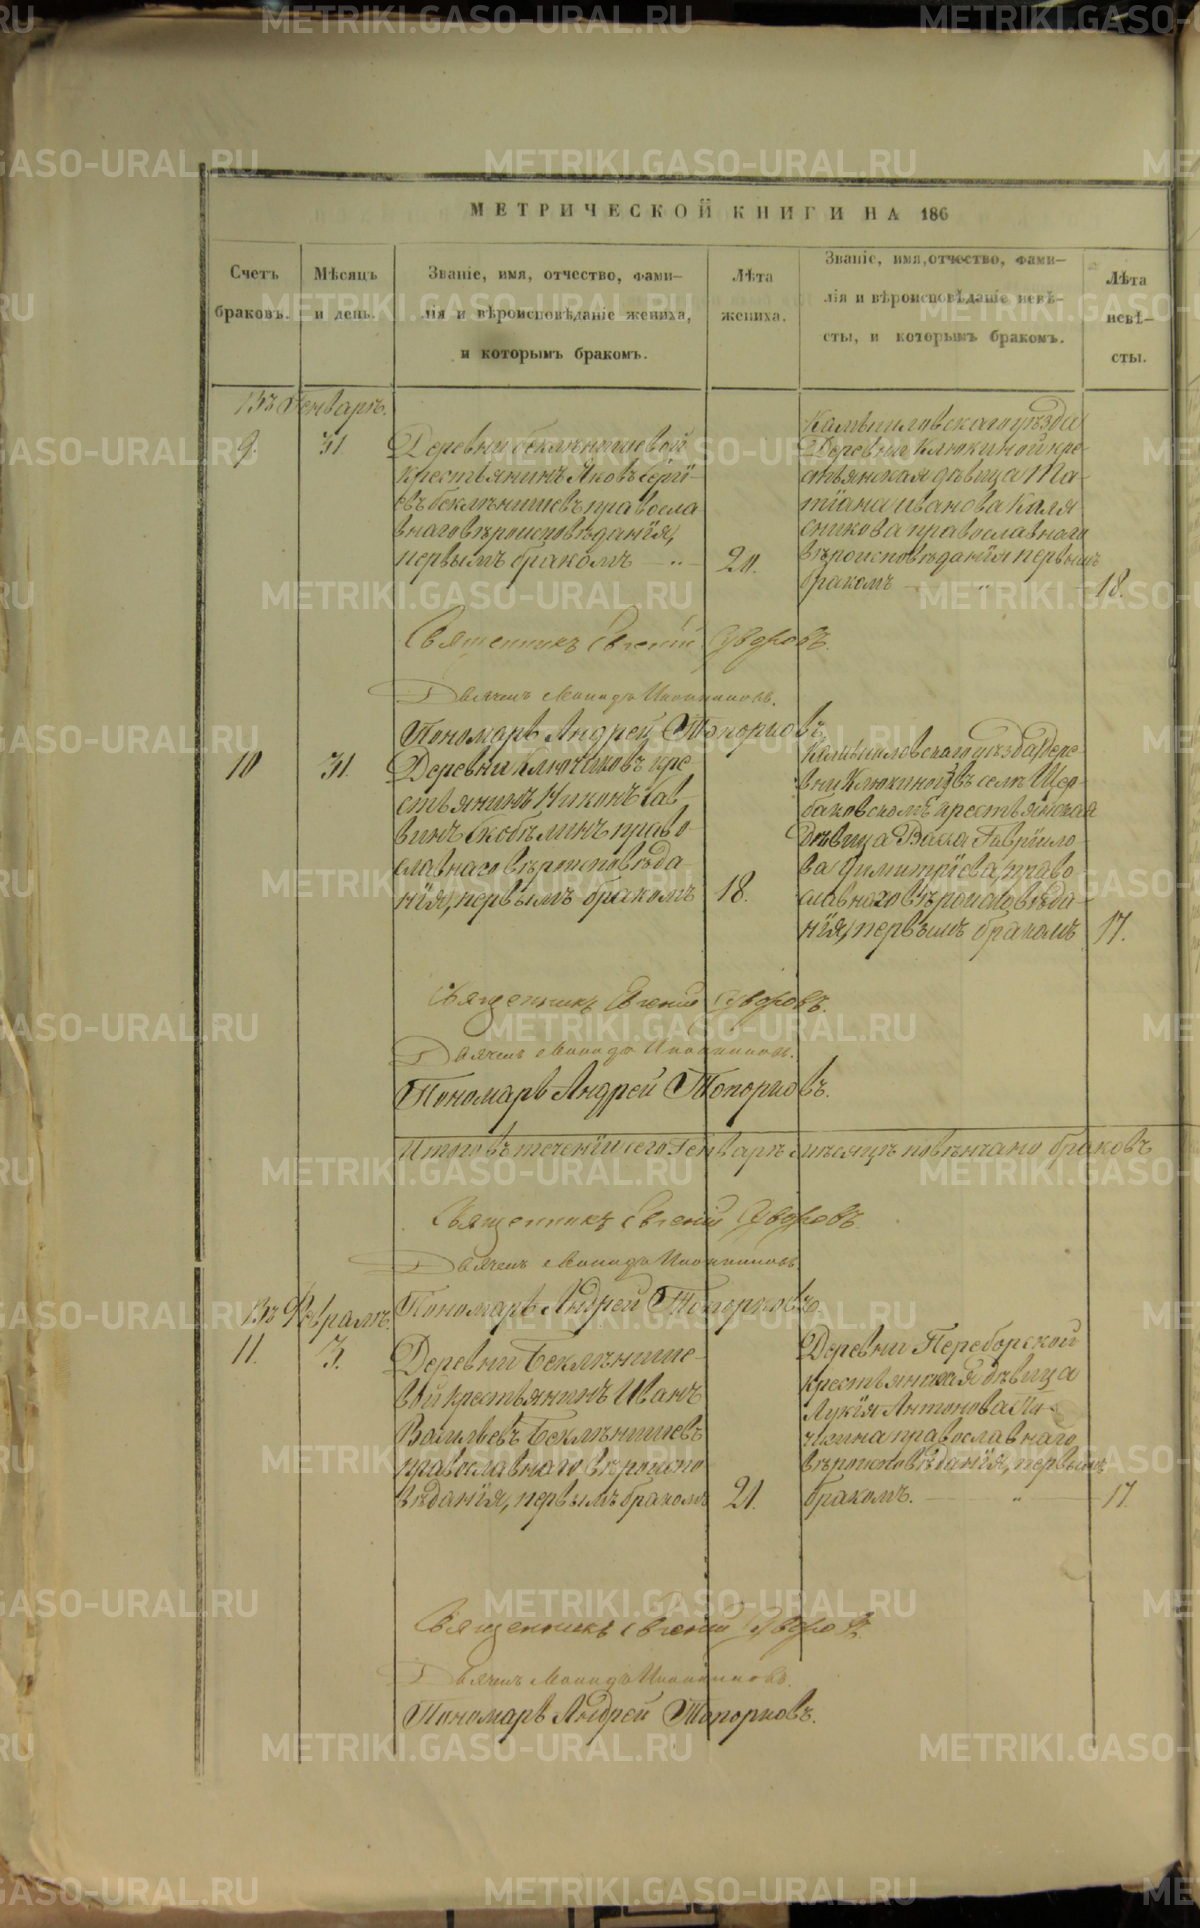 МЕТРИЧЕСКОЙ КНИГИ НА 186
Счетъ
браковъ.
Мѣсяцъ
и день.
Званіе, имя, отчество, фами-
лія и вѣроисповѣданіе жениха,
и которымъ бракомъ.
Лѣта
жениха.
Званіе, имя, отчество, фами-
лія и вѣроисповѣданіе невѣ-
сты, и которымъ бракомъ.
Лѣта
невѣ-
сты.
Въ Генварѣ.
9.
31
Деревни Беклѣнищевой
крестьянинъ Яковъ Сергі-
евъ Беклѣнищевъ правосла
внаго вѣроисповѣданія,
первымъ бракомъ
20.
Камышловскаго уѣзда
Деревни Клюкиной кре-
стьянская дѣвица Та-
тіана Иванова Каля
сникова православнаго
вѣроисповѣданія первымъ
бракомъ
18.
Священникъ Евгеній Уворовъ.
Дьячекъ
Пономарь Андрей Топорковъ.
10
31.
Деревни Ключиковъ кре-
стьянинъ Никонъ Сав-
винъ Скобѣлинъ право-
славнаго вѣроисповѣда-
нія, первымъ бракомъ
18.
Камышловскаго уѣзда, Дере-
вни Клюкиной въ селѣ Щер-
баковскомъ крестьянская
дѣвица Васса Гавріило-
ва Димитріева, право
славнаго вѣроисповѣда-
нія, первымъ бракомъ
17.
Священникъ Евгеній Уворовъ.
Дьячекъ
Пономарь Андрей Топорковъ.
Итого въ теченіи сего Генваря мѣсяцѣ повѣнчано браковъ
Священникъ Евгеній Уворовъ
Дьячекъ
Пономарь Андрей Топорковъ
Въ Февралѣ.
11.
3.
Деревни Беклѣнище-
вой крестьянинъ Иванъ
Васильевъ Беклѣнищевъ
православнаго вѣроиспо
вѣданія, первымъ бракомъ
21.
Деревни Переборской
крестьянская дѣвица
Лукія Антонова Пи-
чкина православнаго
вѣроисповѣданія, первымъ
бракомъ.
17
Священникъ Евгеній Уворовъ.
Дьячекъ
Пономарь Андрей Топорковъ.
METRIKI.GASO-URAL.RU